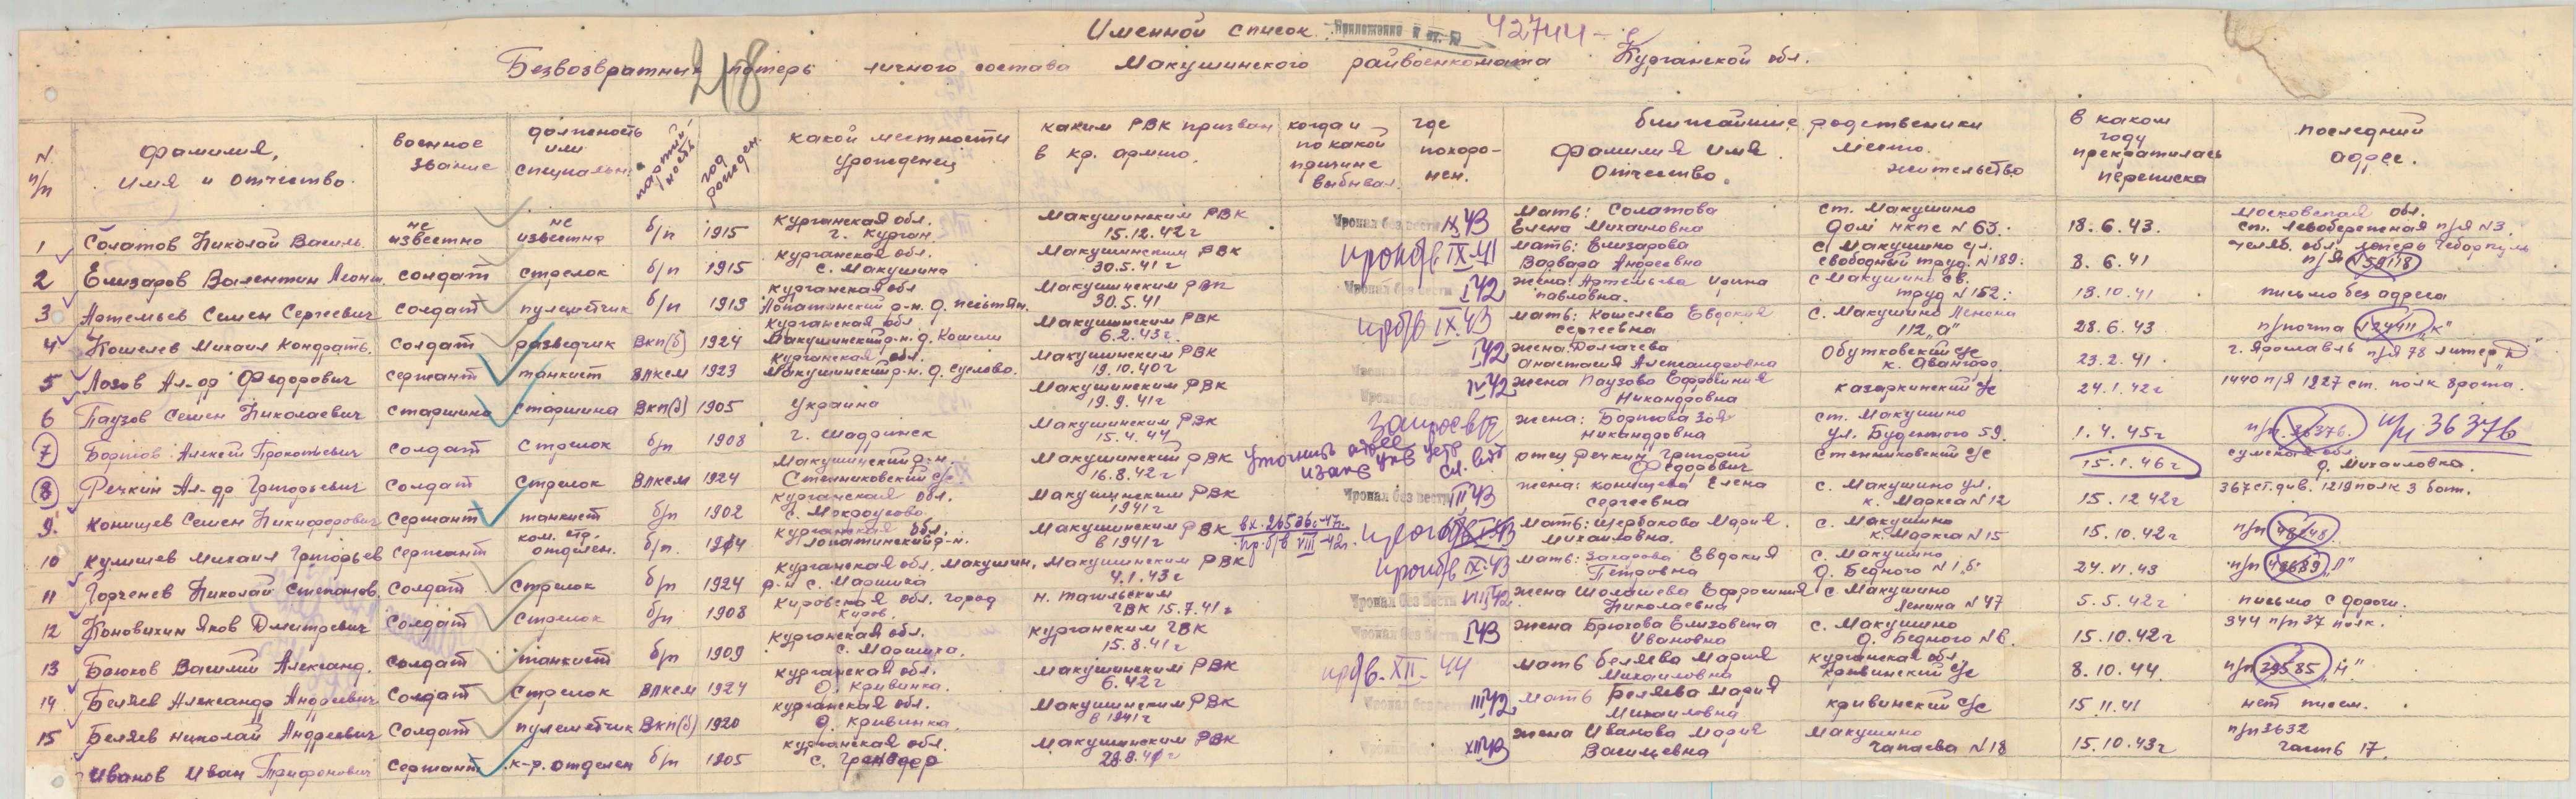 Именной список Приложение к вх. № 42744-с
Безвозвратных потерь личного состава Макушинского райвоенкомата Курганской обл.
218
N п/п | фамилия, имя и отчество. | военное звание | должность или специальн. | партийность | год рожден. | какой местности урожденец | каким РВК призван в кр. армию. | когда и по какой причине выбывал. | где похоронен. | ближайшие родственики фамилия имя Отчество. | место жительство | в каком году прекратилась переписка | последний адрес.
1 Солатов Николай Василь. | не известно | не известно | б/п | 1915 | Курганская обл. г. Курган | Макушинским РВК 15.12.42г | Пропал без вести IX.43 | Мать: Солатова Елена Михайловна | ст. Макушино дом нкпс N 63. | 18.6.43. | московская обл. ст. Левобережная п/я N3.
2 Елизаров Валентин Леонт. | солдат | стрелок | б/п | 1915 | Курганская обл. с. Макушино | Макушинским РВК 30.5.41г | проп б/в IX-41 | мать: Елизарова Варвара Андреевна | с. Макушино ул. свободный труд. N 189. | 8.6.41 | челяб. обл. лагерь Чебаркуль п/я
3 Артемьев Семен Сергеевич | солдат | пулеметчик | б/п | 1913 | Курганская обл Лопатинский р-н. д. | Макушинским РВК 30.5.41 | Пропал без вести I 42 | жена: Артемьева Ирина павловна. | с Макушино св. труд N 152. | 18.10.41 | письмо без адреса
4 Кошелев Михаил Кондрать. | солдат | разведчик | ВКП(б) | 1924 | Курганская обл Макушинский р-н. д. Кошели | Макушинским РВК 6.2.43г. | пр б/в IX.43 | мать: Кошелева Евдокия сергеевна | с. Макушино Ленина 112 „а" | 28.6.43 | п/почта 24411 „К"
5 Лозов Ал-др Федорович | сержант | танкист | ВЛКСМ | 1923 | Курганская обл. Макушинский р-н. д. Суслово. | Макушинским РВК 19.10.40г | I 42 | жена Долгачева Анастасия Александровна | Обутковский с/с к. Авангард. | 23.2.41 | г. Ярославль п/я 78 литер „Д"
6 Паузов Семен Николаевич | старшина | старшина | ВКП(б) | 1905 | Украина | Макушинским РВК 19.9.41г | IV 42 | жена Паузова Ефросиния Никандровна | казаркинский с/с | 24.1.42г | 1440 п/я 1227 ст. полк 8 рота.
7 Бортов Алексей Прокопьевич | солдат | стрелок | б/п | 1908 | г. Шадринск | Макушинским РВК 15.4.44 | запрос в/ч | жена: Бортова Зоя Никандровна | ст. Макушино ул. Буденного 59. | 1.4.45г | п/п 36376. п/п 36376
8 Речкин Ал-др Григорьевич | солдат | стрелок | ВЛКСМ | 1924 | Макушинский р-н. Степниковский с/с | Макушинский РВК 16.8.42г | отец Речкин Григорий Федорович | Степниковский с/с | 15.1.46г | сумская обл д. Михайловка.
9 Конищев Семен Никифорович | Сержант | танкист | б/п | 1902 | Курганская обл. с. Мокроусово | Макушинским РВК 1941г | Пропал без вести II 43 | жена: Конищева Елена сергеевна | с. Макушино ул. к. Маркса N 12 | 15.12.42г | 367 ст. див. 1219 полк 3 бат.
10 Кулишев Михаил Григорьев | сержант | ком. стр. отделен. | б/п. | 1914 | Курганская обл. Лопатинский р-н. | Макушинским РВК в 1941г | вх. 26536с-47г. пр. б/в VIII-42г. | Мать: Щербакова Мария. Михайловна. | с. Макушино к. Маркса N 15 | 15.10.42г | п/п
11 Горченев Николай Степанов. | Солдат | Стрелок | б/п | 1924 | Курганская обл. Макушин. р-н с. Маршиха | Макушинским РВК 4.1.43г | проп б/в IX-43 | мать: Захарова Евдокия Петровна | с. Макушино Д. Бедного N 1 „б" | 24.VI.43 | п/п „Л"
12 Коновихин Яков Дмитревич | Солдат | Стрелок | б/п | 1908 | Кировская обл. город Киров. | Н. Тагильским ГВК 15.7.41г | Пропал без вести VIII 42 | жена Шолашева Ефросиния Николаевна | с. Макушино Ленина N 47 | 5.5.42г | письмо с дороги.
13 Брюхов Василий Александ. | Солдат | танкист | б/п | 1909 | Курганская обл. с. Маршиха. | Курганским ГВК 15.8.41г | Пропал без вести I 43 | жена Брюхова Елизовета Ивановна | с. Макушино Д. Бедного N 6. | 15.10.42г | 344 п/п 37 полк.
14 Беляев Александр Андреевич | Солдат | Стрелок | ВЛКСМ | 1924 | Курганская обл. д. Кривинка. | Макушинским РВК 6.42г | пр б/в. XII-44 | мать Беляева Мария Михаиловна | Курганская обл. кривинский с/с | 8.10.44. | п/п 29585 „Н"
15 Беляев Николай Андреевич | Солдат | пулеметчик | ВКП(б) | 1920 | Курганская обл. д. Кривинка | Макушинским РВК в 1941г | III 42 | мать Беляева Мария Михаиловна | кривинский с/с | 15.11.41 | нет писем.
Иванов Иван Трифонович | Сержант | к-р. отделен | б/п | 1905 | Курганская обл. с. | Макушинским РВК 28.8.41г | XII 43 | жена Иванова Мария Васильевна | Макушино Чапаева N 18 | 15.10.43г | п/п 3632 часть 17.